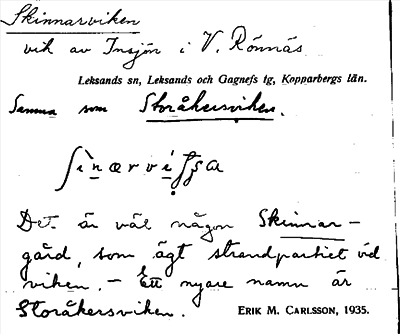 Skinnarviken
vik av Insjön i V. Rönnäs
Leksands sn, Leksands och Gagnefs tg, Kopparbergs län.
Samma som Storåkersviken.
Det är väl någon Skinnar-
gård, som ägt strandpartiet vid
viken. – Ett nyare namn är
Storåkersviken.
ERIK M. CARLSSON, 1935.